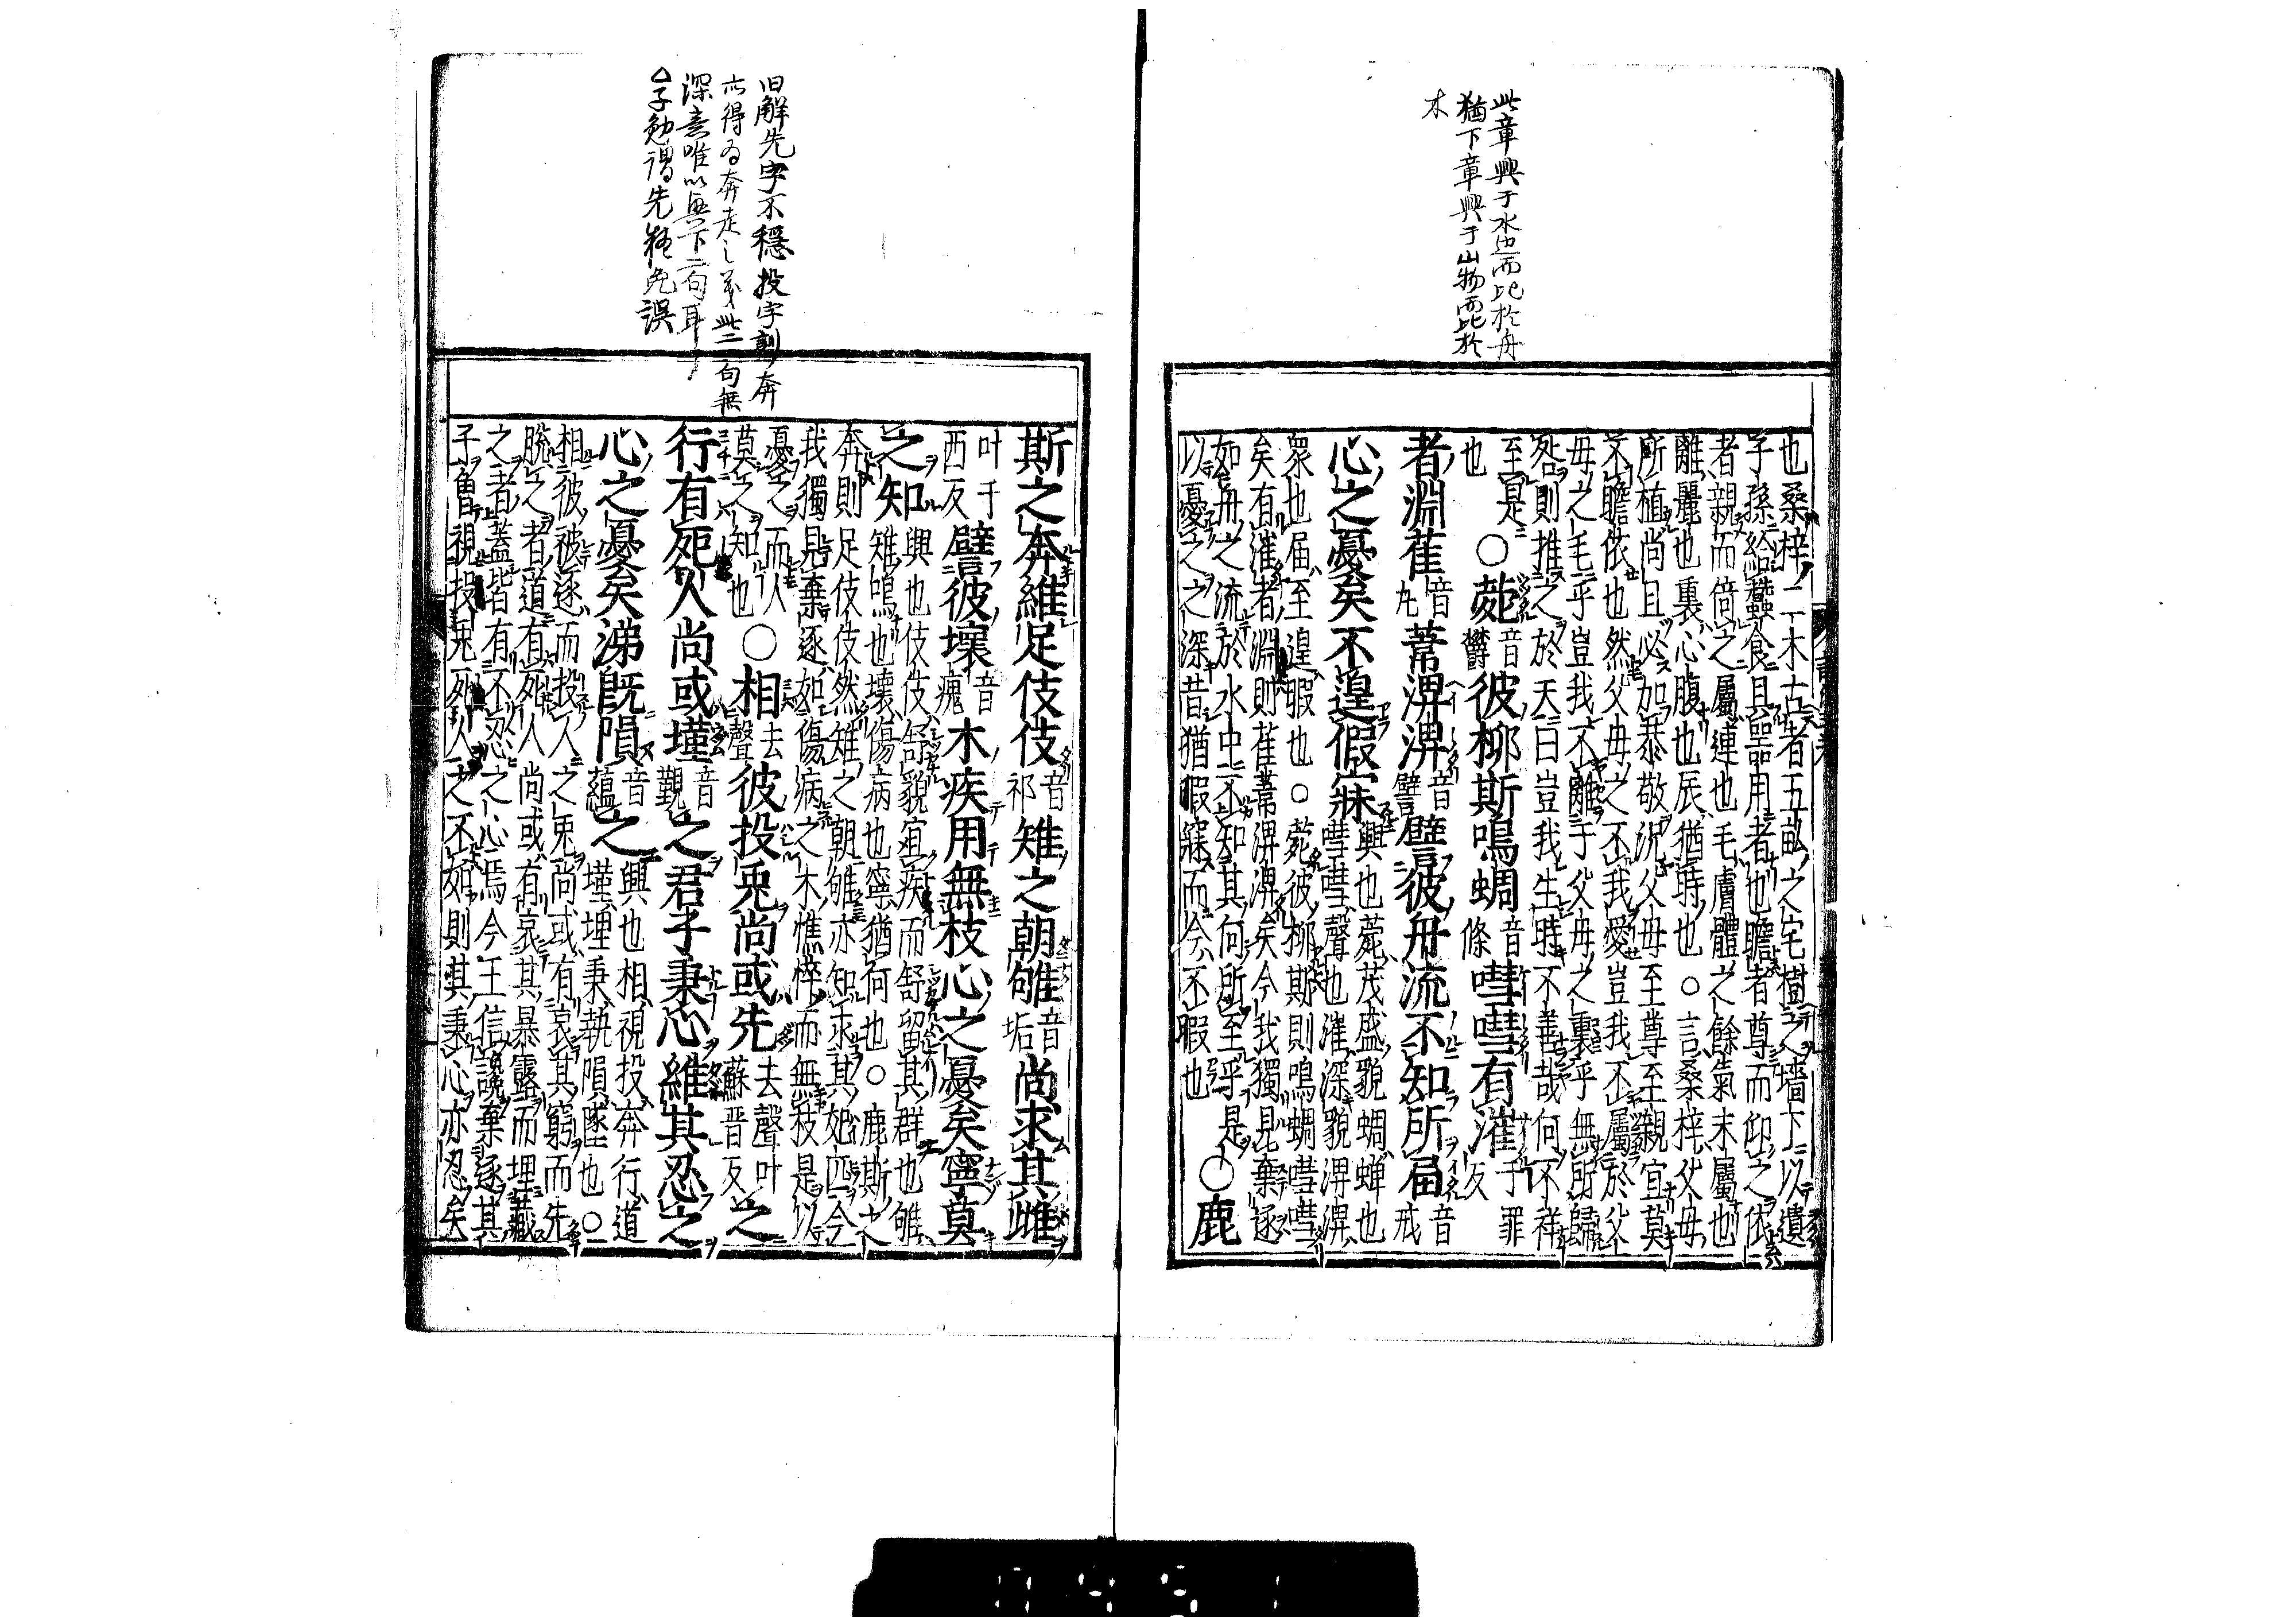 此章興于水也而比於舟
猶下章興于山物而比於
木
也桑梓二木古者五畝之宅樹之墻下以遺
子孫給蠶食具器用者也瞻者尊而仰之依
者親而倚之屬連也毛膚體之餘氣末屬也
離麗也裏心腹也辰猶時也○言桑梓父母
所植尚且必加恭敬況父母至尊至親宜莫
不瞻依也然父母之不我愛豈我不屬於父
母之毛乎豈我不離于父母之裏乎無所歸
咎則推之於天曰豈我生時不善哉何不祥
至是也○菀音鬱彼柳斯鳴蜩音條嘒嘒有漼于罪反
者淵萑音丸葦淠淠音譬譬彼舟流不知所届音戒
心之憂矣不遑假寐興也菀茂盛貌蜩蟬也嘒嘒聲也漼深貌淠淠
衆也届至遑暇也○菀彼柳斯則鳴蜩嘒嘒
矣有漼者淵則萑葦淠淠矣今我獨見棄逐
如舟之流於水中不知其何所至乎是
以憂之之深昔猶假寐而今不暇也○鹿
旧解先字不穩投字訓奔
亦得為奔走之義此二句無
深意唯以興下二句耳
△子勉謂先釋免誤
斯之奔維足伎伎音祁雉之朝雊音垢尚求其雌
叶千西反譬彼壞音瘣木疾用無枝心之憂矣寧莫
之知興也伎伎舒貌宜疾而舒留其群也雊
雉鳴也壞傷病也寧猶何也○鹿斯之
奔則足伎伎然雉之朝雊亦知求其妃匹今
我獨見棄逐如傷病之木憔悴而無枝是以
憂之而人莫之知也○相去聲彼投兎尚或先去聲叶蘇晋反之
行有死人尚或墐音覲之君子秉心維其忍之
心之憂矣涕既隕音蘊之興也相視投奔行道墐埋秉執隕墜也○
相彼被逐而投人之兎尚或有哀其窮而先
脱之者道有死人尚或有哀其暴露而埋藏
之者蓋皆有不忍之心焉今王信讒棄逐其
子曾視投兎死人之不如則其秉心亦忍矣